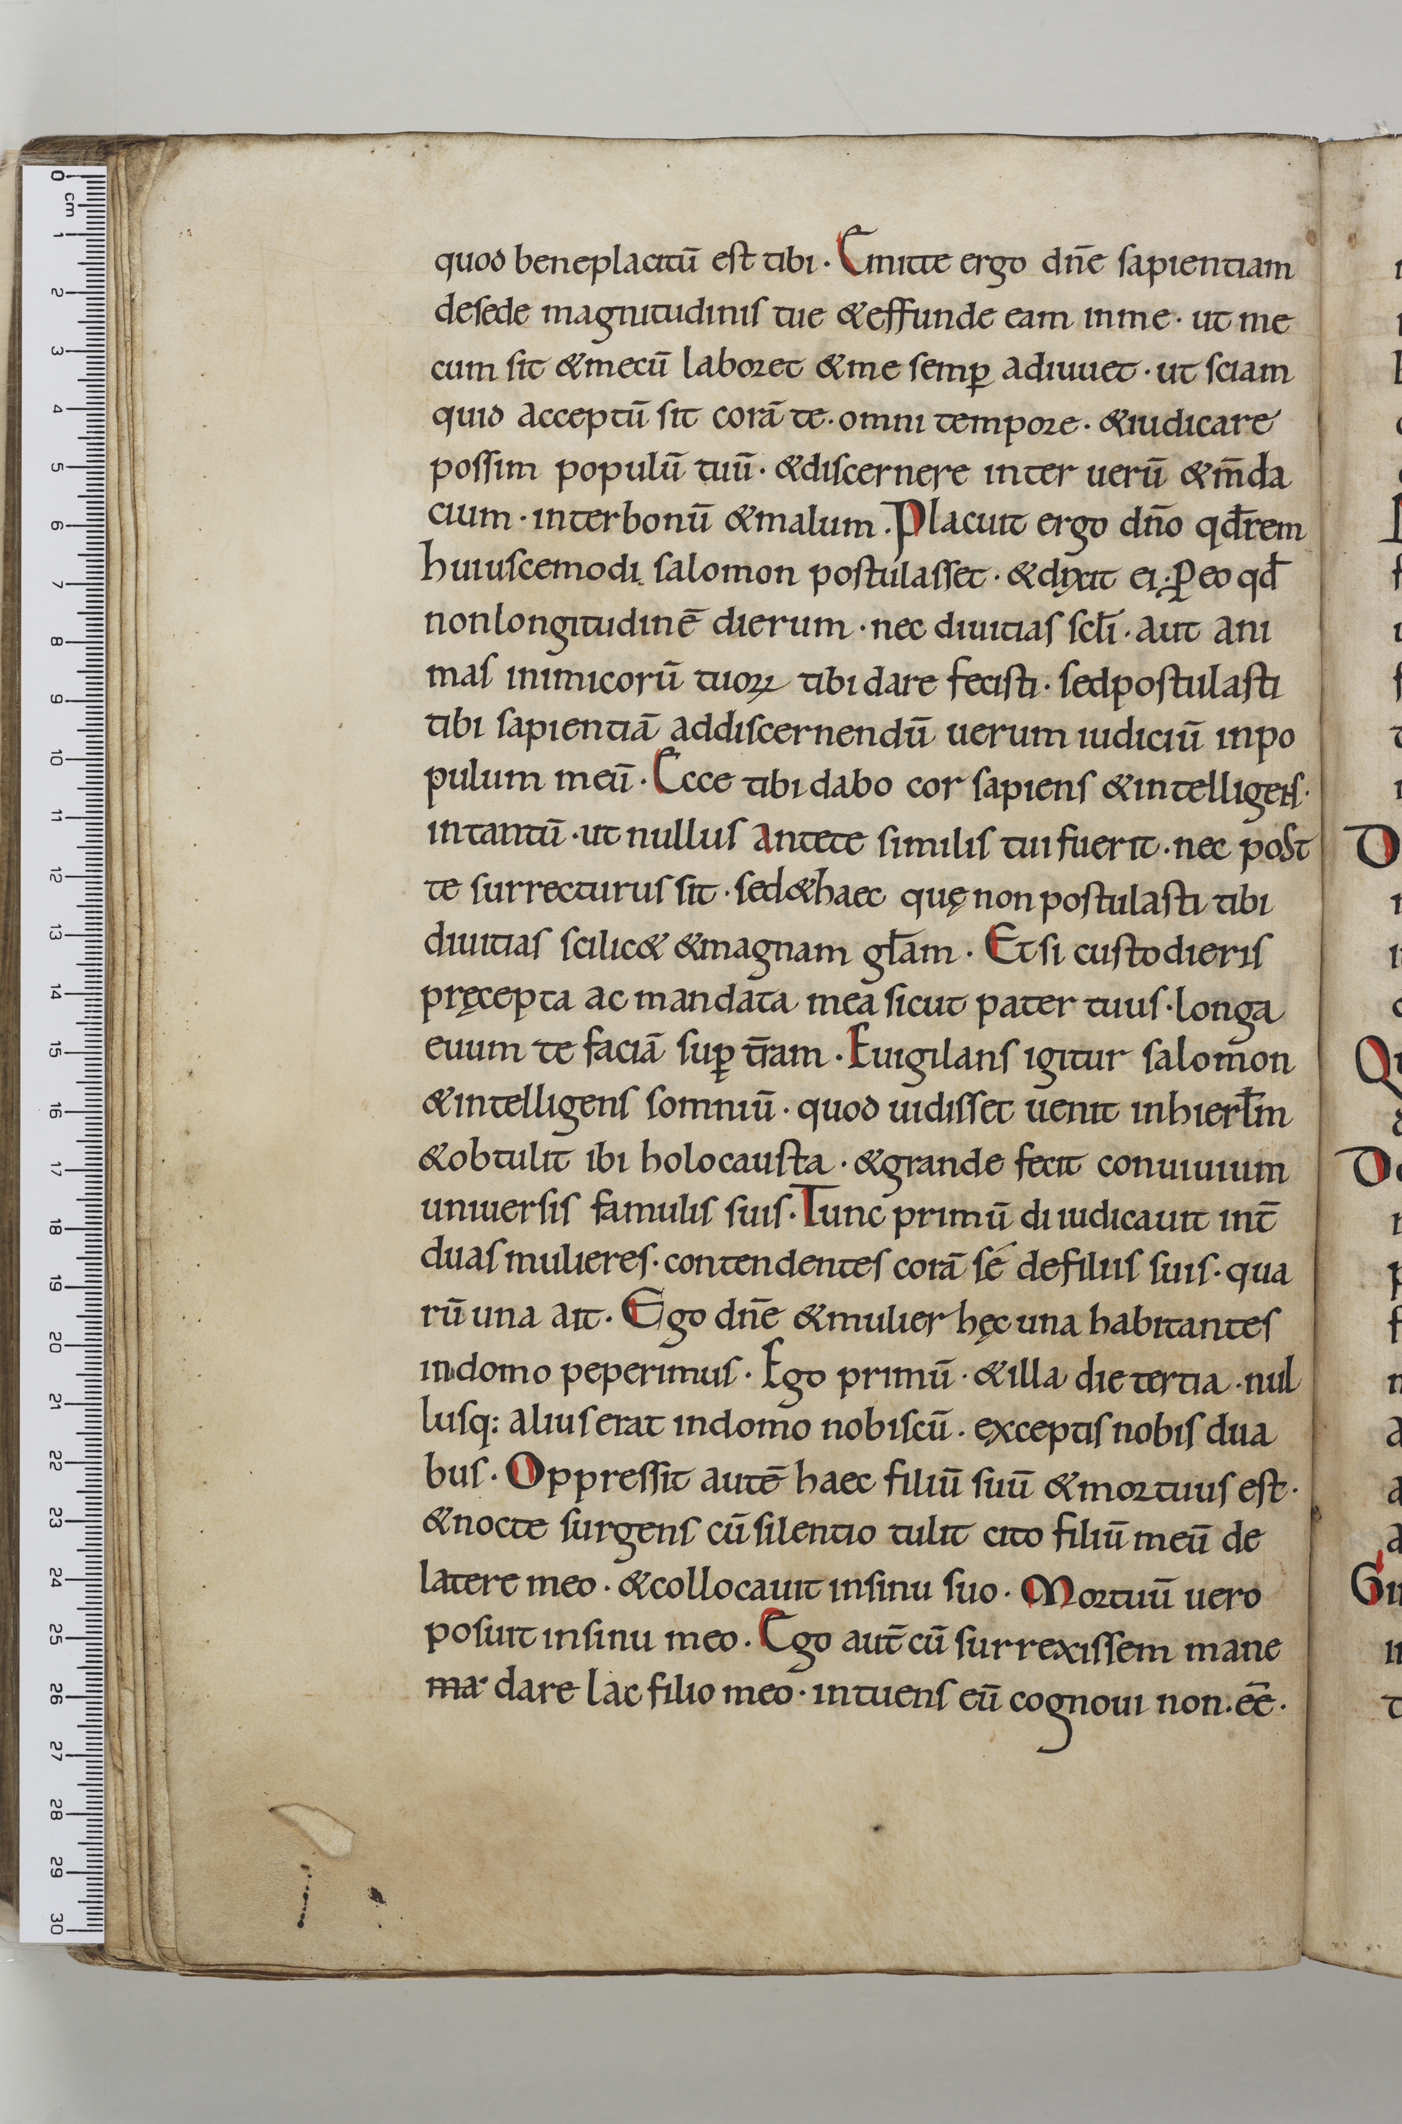 quod beneplacitū est tibi · Emitte ergo dn̄e sapientiam
desede magnitudinis tue &effunde eam inme · ut me
cum sit &mecū laboret &me semꝑ adiuuet · ut sciam
quid acceptū sit corā te · omni tempore · &iudicare
possim populū tuū · &discernere inter uerū &m̄da
cium · interbonū &malum . Placuit ergo dn̄o qđ rem
huiuscemodi salomon postulasset · &dixit ei · P eo qđ
nonlongitudinē dierum · nec diuitias scłi · aut ani
mas inimicorū tuoꝝ tibi dare fecisti · sedpostulasti
tibi sapientiā addiscernendū uerum iudiciū inpo
pulum meū · Ecce tibi dabo cor sapiens &intelligens ·
intantū · ut nullus antete similis tui fuerit · nec post
te surrecturus sit · sed&haec quę non postulasti tibi
diuitias scilic& &magnam głam · Et si custodieris
pręcepta ac mandata mea sicut pater tuus · longa
euum te faciā suꝑ t̄ram · Euigilans igitur salomon
&intelligens somniū · quod uidisset uenit inhierłm
&obtulit ibi holocausta · &grande fecit conuiuium
uniuersis famulis suis · Tunc primū di iudicauit int̄
duas mulieres · contendentes corā sé defiliis suis · qua
rū una ait · Ego dn̄e &mulier hęc una habitantes
indomo peperimus · Ego primū · &illa die tertia · nul
lusq: alius erat indomo nobiscū · exceptis nobis dua
bus · Oppressit autē haec filiū suū &mortuus est ·
&nocte surgens cū silentio tulit cito filiū meū de
latere meo · &collocauit insinu suo · Mortuū uero
posuit insinu meo · Ego aut̄ cū surrexissem mane
ma dare lac filio meo · intuens eū cognoui non · ee̅ ·